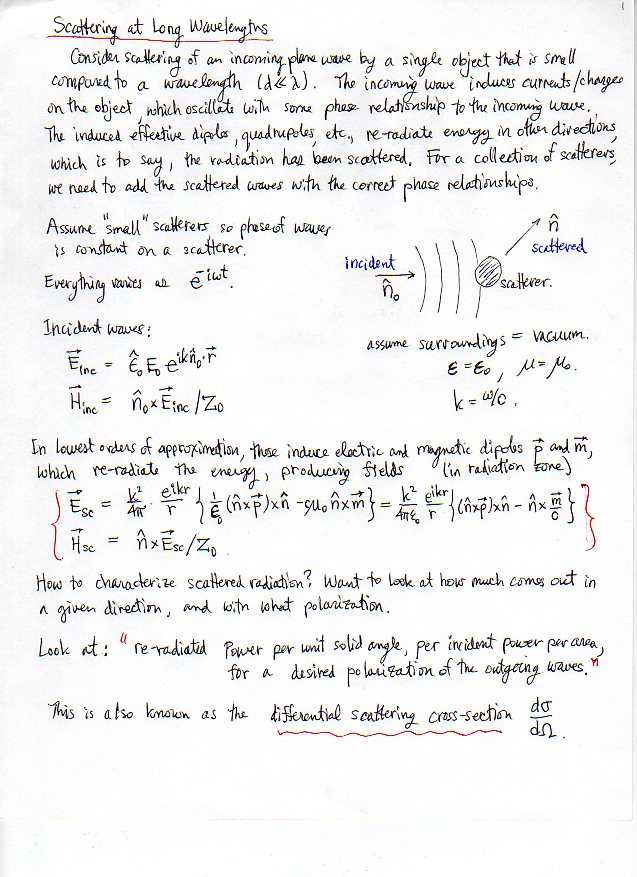 1
Scattering at Long Wavelengths
Consider scattering of an incoming plane wave by a single object that is small
compared to a wavelength (d≪λ). The incoming wave induces currents/charges
on the object, which oscillate with some phase relationship to the incoming wave.
The induced effective dipoles, quadrupoles, etc., re-radiate energy in other directions,
which is to say, the radiation has been scattered. For a collection of scatterers,
we need to add the scattered waves with the correct phase relationships.
Assume "small" scatterers so phase of waves
is constant on a scatterer.
Everything varies as e^{-iωt}.
incident
n̂₀
n̂
scattered
scatterer.
Incident waves:
E⃗_inc = ε̂₀ E₀ e^{ikn̂₀·r⃗}
H⃗_inc = n̂₀×E⃗_inc/Z₀
assume surroundings = vacuum.
ε=ε₀, μ=μ₀.
k=ω/c.
In lowest orders of approximation, these induce electric and magnetic dipoles p⃗ and m⃗,
which re-radiate the energy, producing fields (in radiation zone)
E⃗_sc = k²/4π · e^{ikr}/r {1/ε₀ (n̂×p⃗)×n̂ - cμ₀ n̂×m⃗} = k²/4πε₀ e^{ikr}/r {(n̂×p⃗)×n̂ - n̂×m⃗/c}
H⃗_sc = n̂×E⃗_sc/Z₀
How to characterize scattered radiation? Want to look at how much comes out in
a given direction, and with what polarization.
Look at: "re-radiated Power per unit solid angle, per incident power per area,
for a desired polarization of the outgoing waves."
This is also known as the differential scattering cross-section dσ/dΩ.